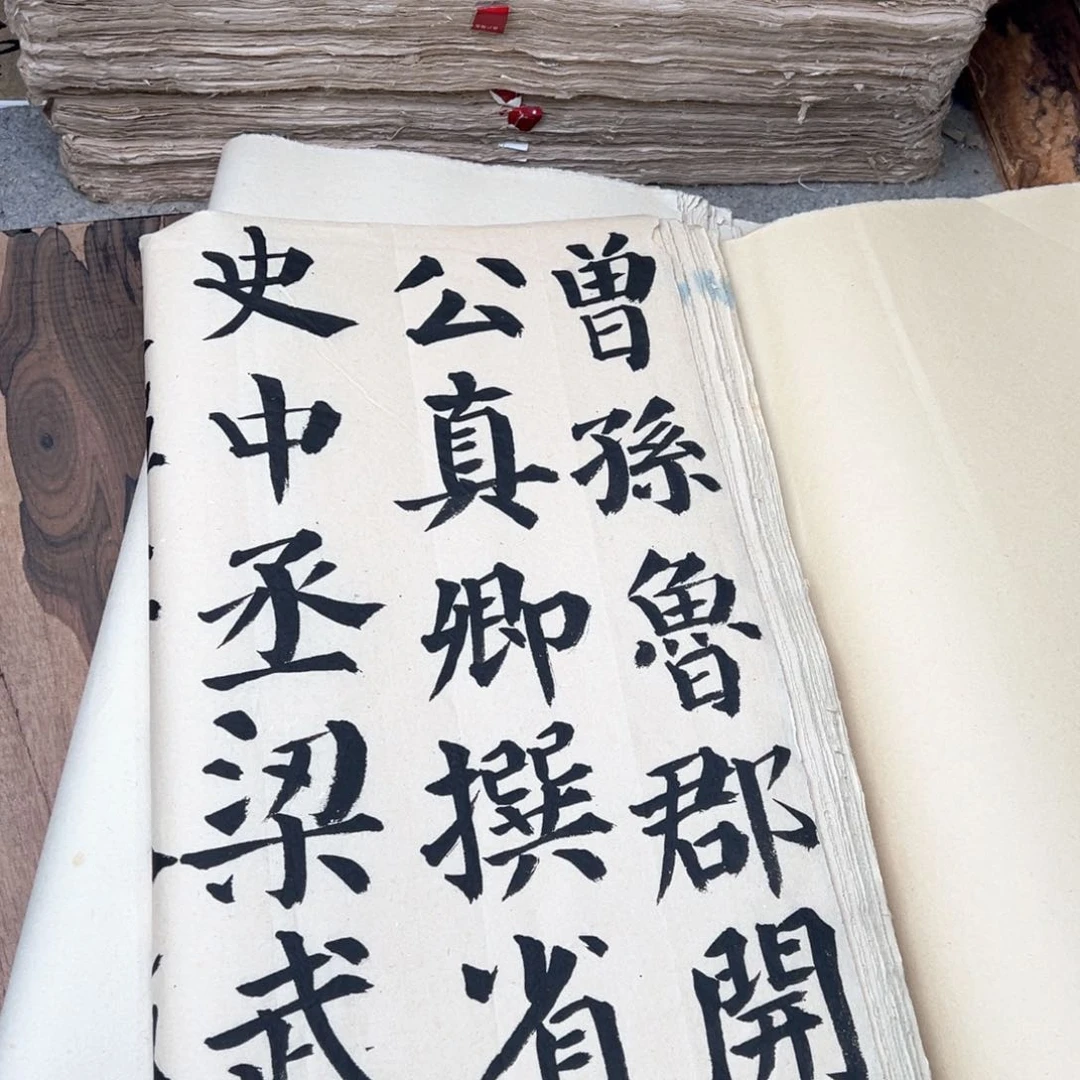 曾孫魯郡開
公真卿撰省
史中丞梁武